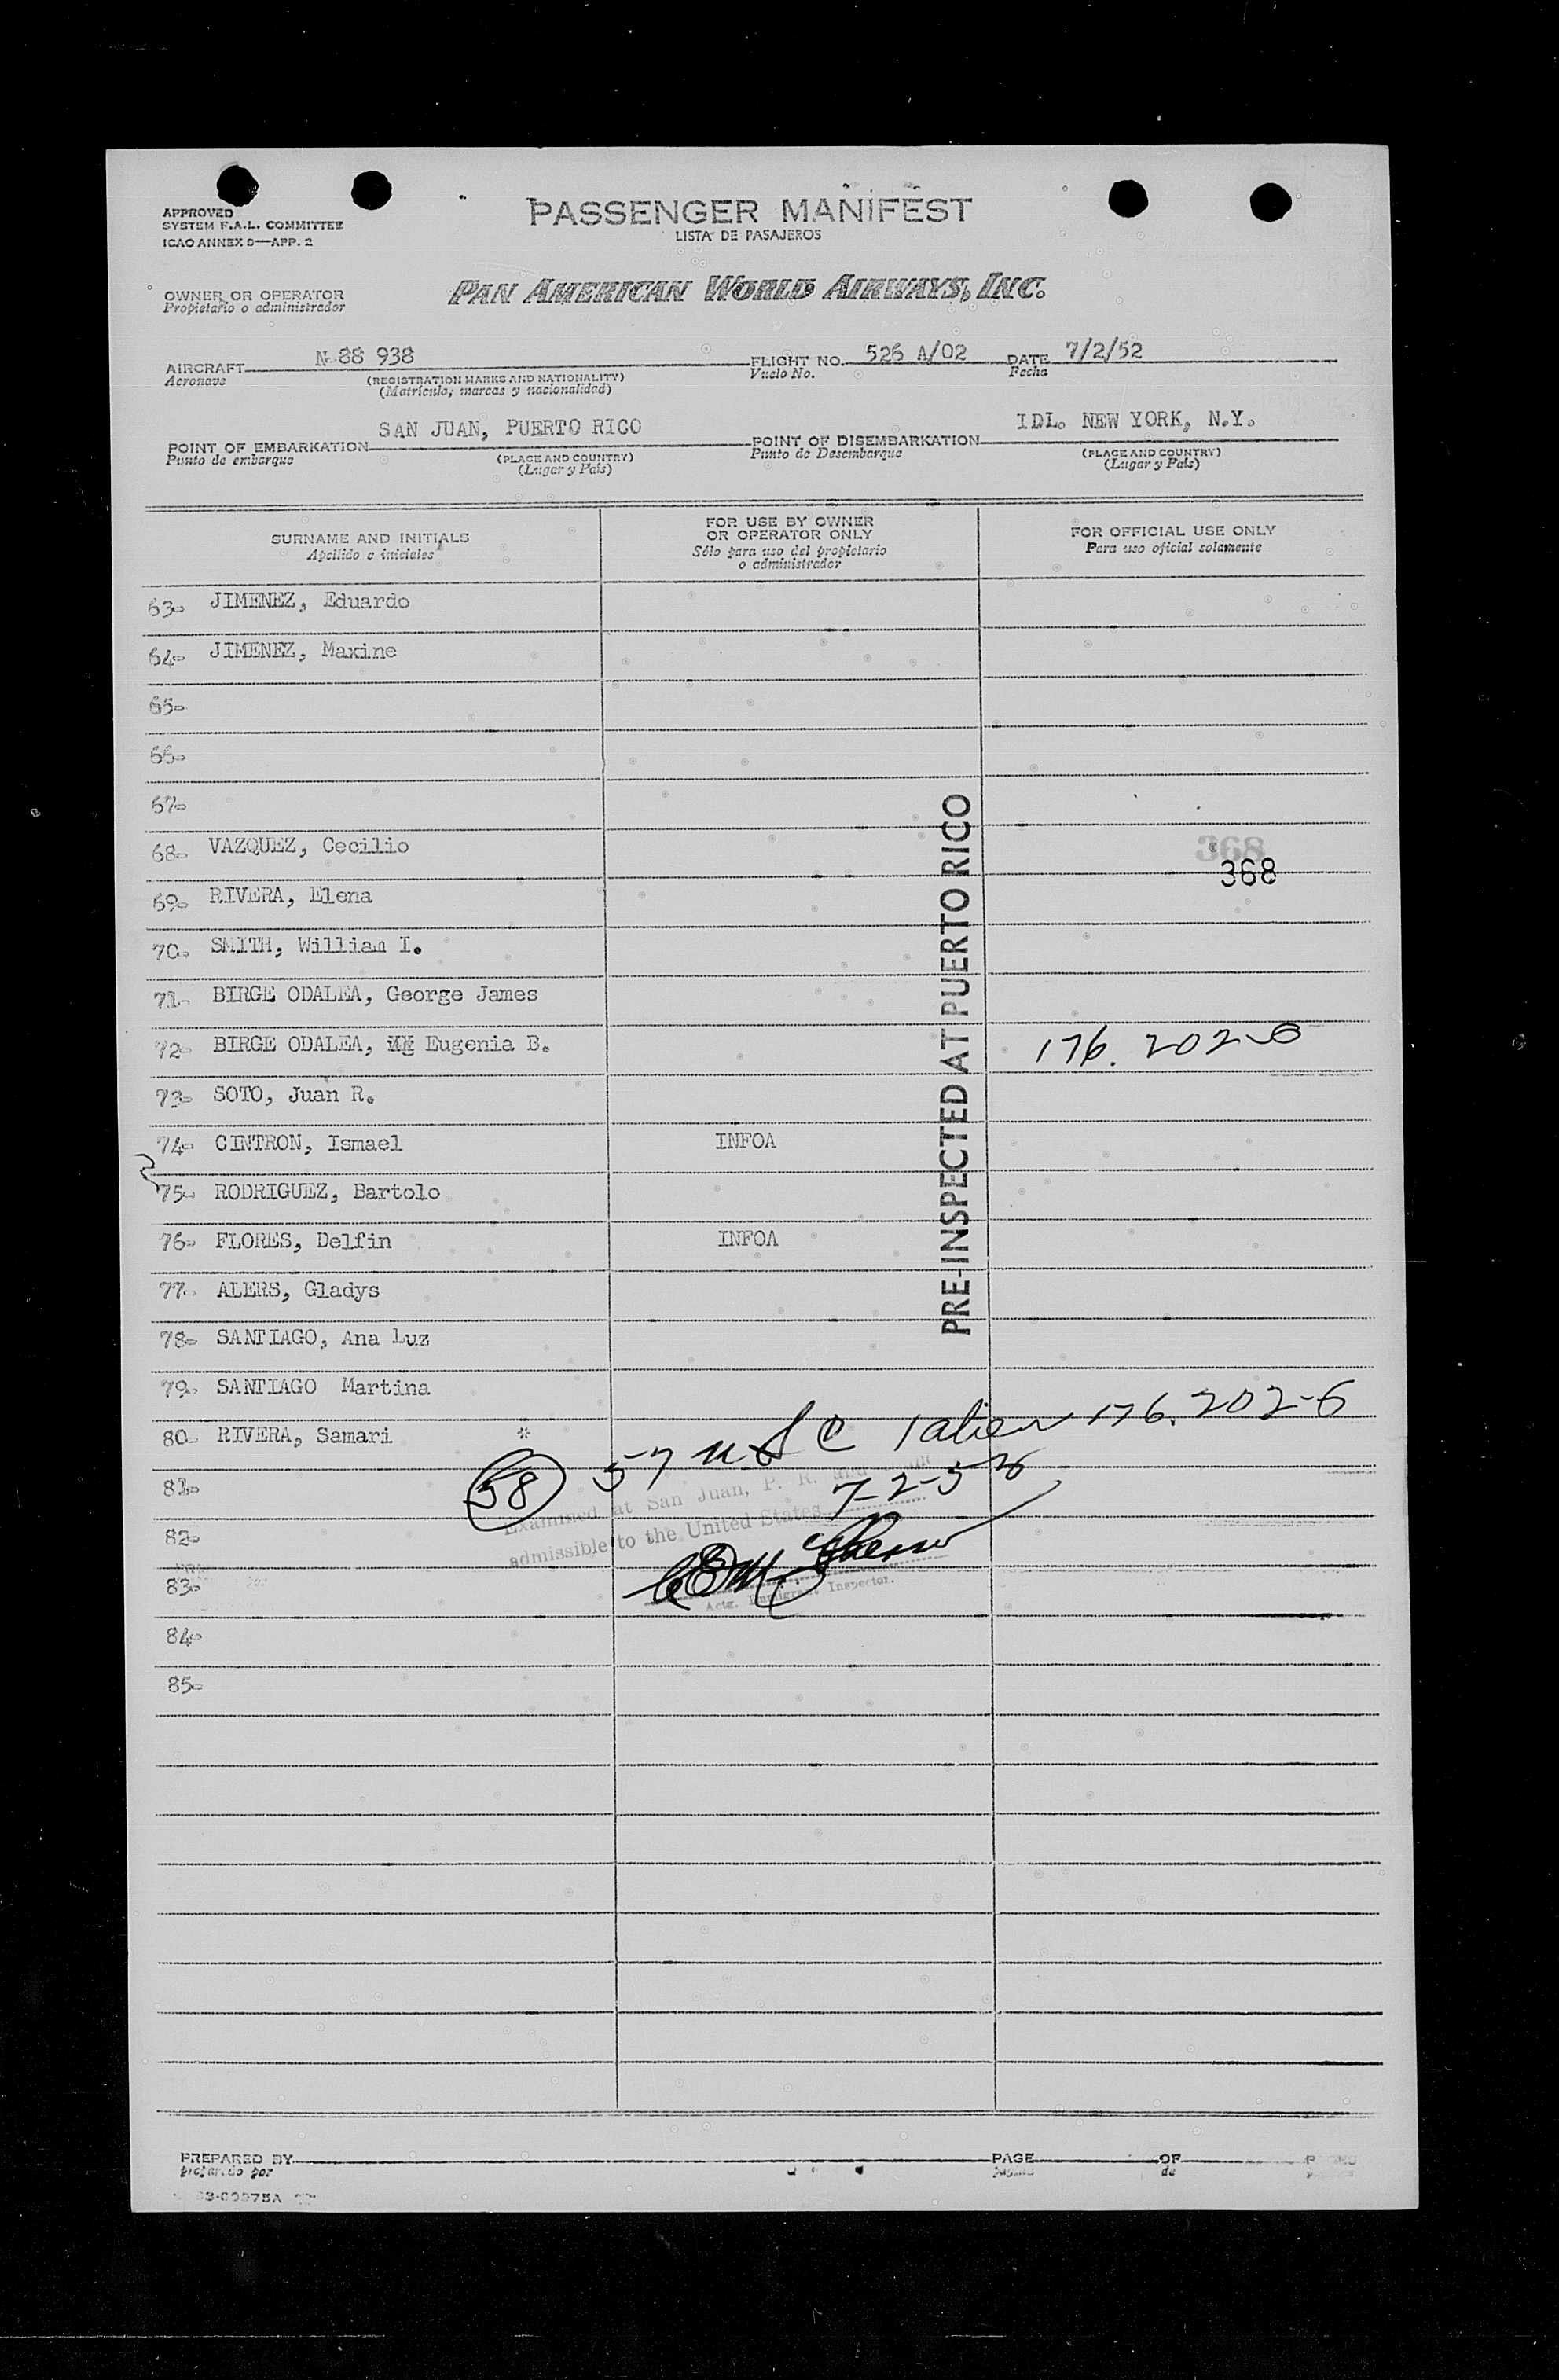 APPROVED
SYSTEM F.A.L. COMMITTEE
ICAO ANNEX 9—APP. 2
PASSENGER MANIFEST
LISTA DE PASAJEROS
OWNER OR OPERATOR
Propietario o administrador
PAN AMERICAN WORLD AIRWAYS, INC.
AIRCRAFT N 88 938 FLIGHT NO. 526 A/02 DATE 7/2/52
Aeronave (REGISTRATION MARKS AND NATIONALITY) Vuelo No. Fecha
(Matrícula, marcas y nacionalidad)
POINT OF EMBARKATION SAN JUAN, PUERTO RICO POINT OF DISEMBARKATION IDL. NEW YORK, N.Y.
Punto de embarque (PLACE AND COUNTRY) Punto de Desembarque (PLACE AND COUNTRY)
(Lugar y País) (Lugar y País)
SURNAME AND INITIALS
Apellido e iniciales
FOR USE BY OWNER
OR OPERATOR ONLY
Sólo para uso del propietario
o administrador
FOR OFFICIAL USE ONLY
Para uso oficial solamente
63- JIMENEZ, Eduardo
64- JIMENEZ, Maxine
65-
66-
67-
68- VAZQUEZ, Cecilio 368
368
69- RIVERA, Elena
70- SMITH, William I.
71- BIRGE ODALEA, George James
72- BIRGE ODALEA, Eugenia B. 176.202-6
73- SOTO, Juan R.
74- CINTRON, Ismael INFOA
75- RODRIGUEZ, Bartolo
76- FLORES, Delfin INFOA
77- ALERS, Gladys
78- SANTIAGO, Ana Luz
79- SANTIAGO Martina
80- RIVERA, Samari *
PRE-INSPECTED AT PUERTO RICO
58 57 USC 1 alien 176.202-6
81-
Examined at San Juan, P. R. and
7-2-52
82-
admissible to the United States
83-
Actg. Immigrant Inspector.
84-
85-
PREPARED BY PAGE OF
por de